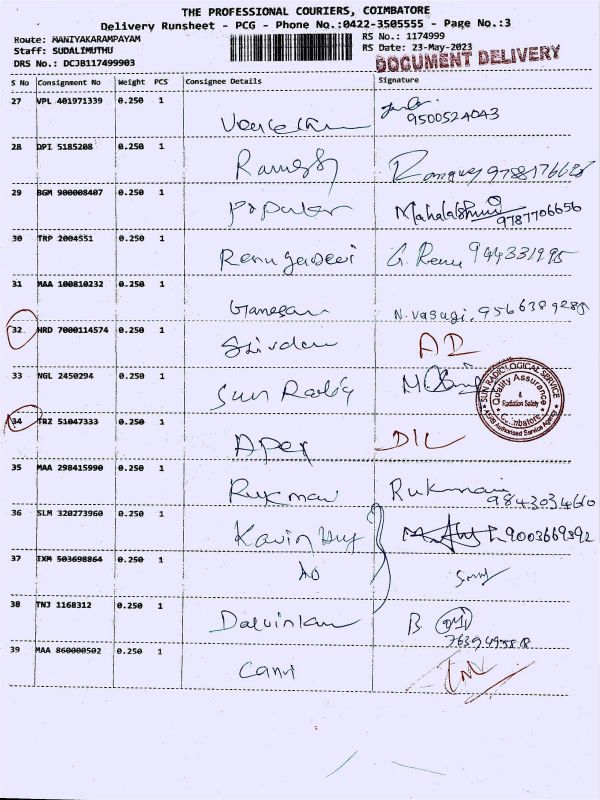 THE PROFESSIONAL COURIERS, COIMBATORE
Delivery Runsheet - PCG - Phone No.:0422-3505555 - Page No.:3
Route: MANIYAKARAMPAYAM RS No.: 1174999
Staff: SUDALIMUTHU RS Date: 23-May-2023
DRS No.: DCJB117499903 DOCUMENT DELIVERY
S No Consignment No Weight PCS Consignee Details Signature
27 VPL 401971339 0.250 1
9500524043
28 DPI 5185208 0.250 1 Ramesh
29 BGM 900008407 0.250 1 Popular Mahalakshmi
9787706656
30 TRP 2004551 0.250 1 Renugadevi G. Renu
31 MAA 100810232 0.250 1 Ganesan N. Vasugi.
32 HRD 7000114574 0.250 1 AD
33 NGL 2450294 0.250 1 Sun
SUN RADIOLOGICAL SERVICE
Quality Assurance
& Radiation Safety
Coimbatore
34 TRZ 51047333 0.250 1 Apex D/L
35 MAA 298415990 0.250 1 Rukmani
9843034660
36 SLM 320273960 0.250 1 9003669392
37 IXM 503698864 0.250 1
38 TNJ 1168312 0.250 1 B
39 MAA 860000502 0.250 1